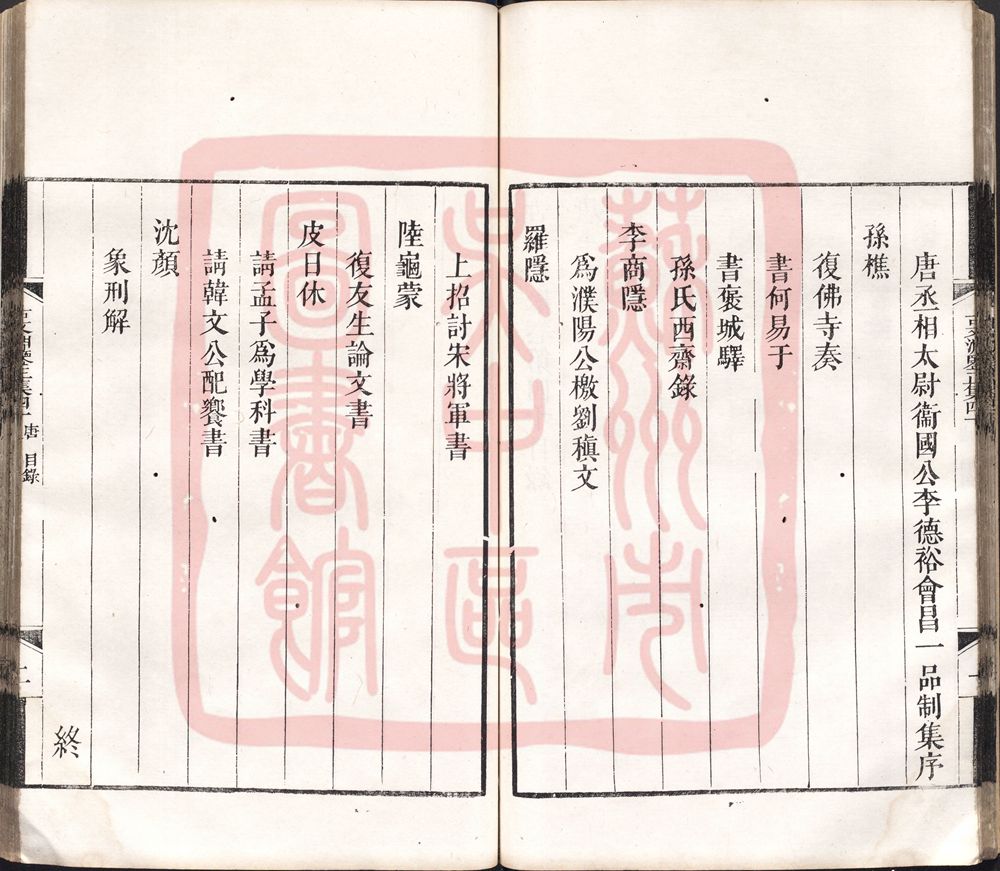 唐丞相太尉衞國公李德裕會昌一品制集序
孫樵
復佛寺奏
書何易于
書褒城驛
孫氏西齋錄
李商隱
爲濮陽公檄劉稹文
羅隱
上招討宋將軍書
陸龜蒙
復友生論文書
皮日休
請孟子爲學科書
請韓文公配饗書
沈顏
象刑解
終
唐 目錄
蘇州市
吴中區
圖書館